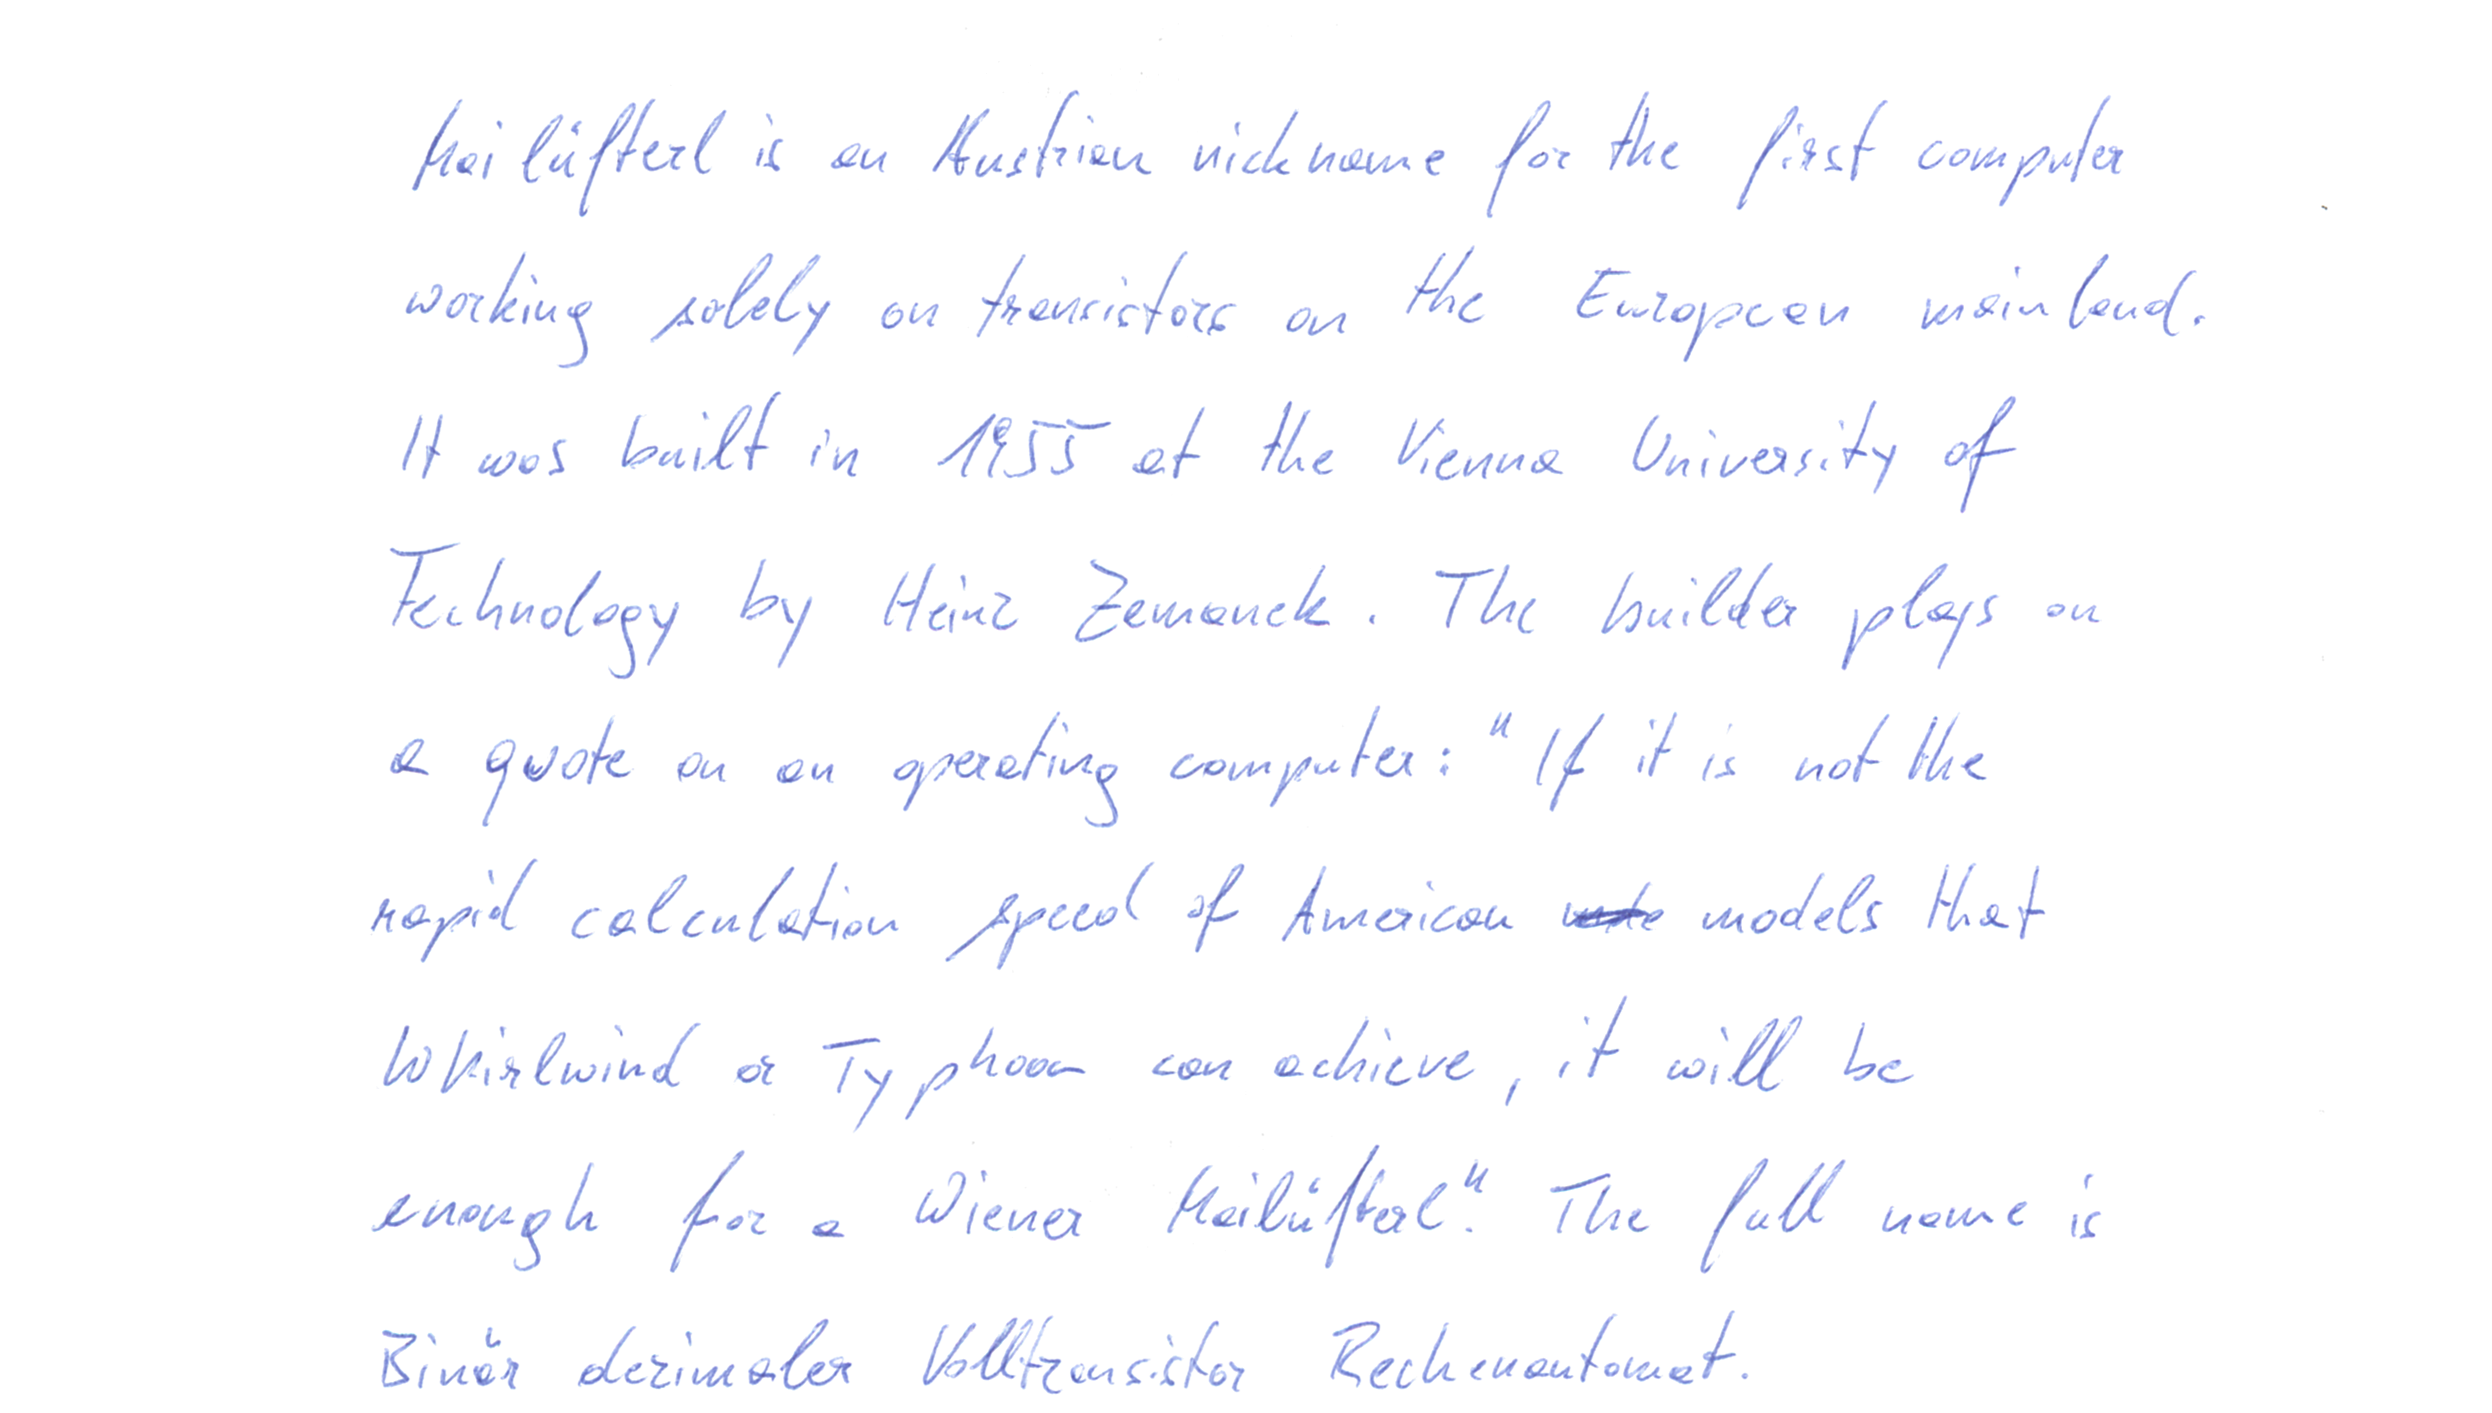 Mailüfterl is an Austrian nickname for the first computer
working solely on transistors on the European mainland.
It was built in 1955 at the Vienna University of
Technology by Heinz Zemanek. The builder plays on
a quote on an operating computer: "If it is not the
rapid calculation speed of American models that
Whirlwind or Typhoon can achieve, it will be
enough for a Wiener Mailüfterl". The full name is
Binär dezimaler Volltransistor Rechenautomat.